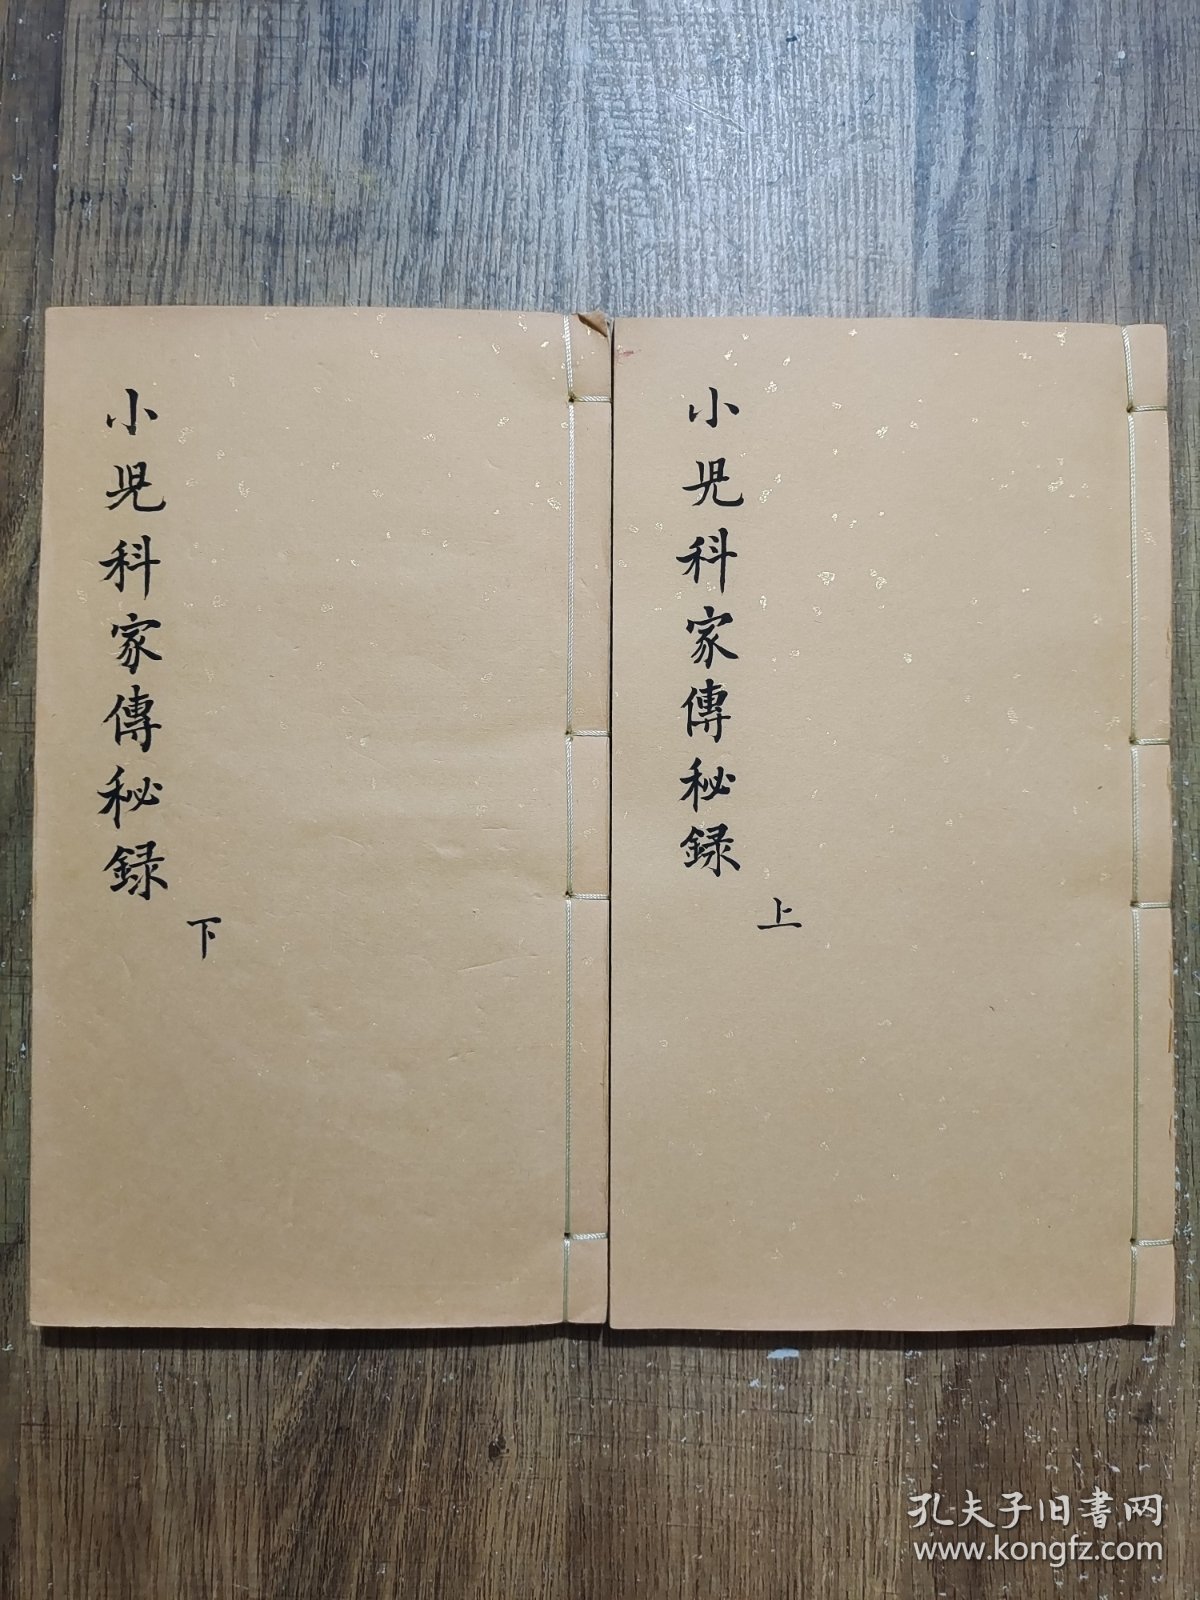 小児科家傳秘録
上
小児科家傳秘録
下
孔夫子旧書网
www.kongfz.com